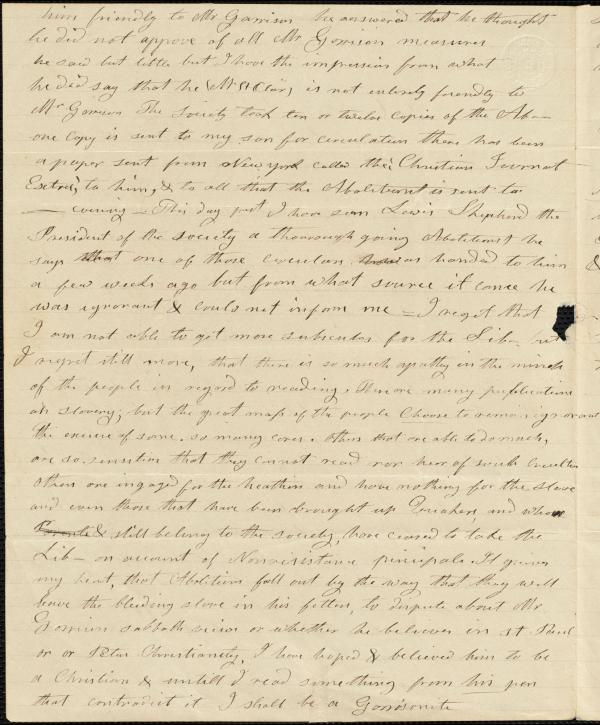 him friendly to Mr Garrison he answered that he thought
he did not approve of all Mr Garrison measures
he said but little but I have the impression from what
he did say that he (Mr St Clair) is not entirely friendly to
Mr Garrison The Society took ten or twelve copies of the Ab—
one copy is sent to my son for circulation there has been
a paper sent from New york called the Christian Journal
Extra, to him, & to all that the Abolitionist is sent to
— evening — This day past I have seen Lewis Shepherd the
President of the society a thorough going Abolitionist he
says that one of those circulars was handed to him
a few weeks ago but from what source it came he
was ignorant & could not inform me — I regret that
I am not able to get more subscribers for the Lib—
I regret still more, that there is so much apathy in the minds
of the people in regard to reading, there are many publications
on slavery, but the great mass of the people choose to remain ignorant
the excuse of some, so many cares, others that are able to do much,
are so sensitive that they cannot read nor hear of such cruelties
others are engaged for the heathen and have nothing for the slave
and even those that have been brought up Quakers, and whose
Parents & still belong to the society, have ceased to take the
Lib— on account of Nonresistance principals It grieves
my heart, that Abolition fall out by the way that they will
leave the bleeding slave in his fetters, to dispute about Mr
Garrison sabbath views or whether he believes in St Paul
or or Peter Christianity, I have hoped & believed him to be
a Christian & untill I read something from his pen
that contradict it I shall be a Garrisonite